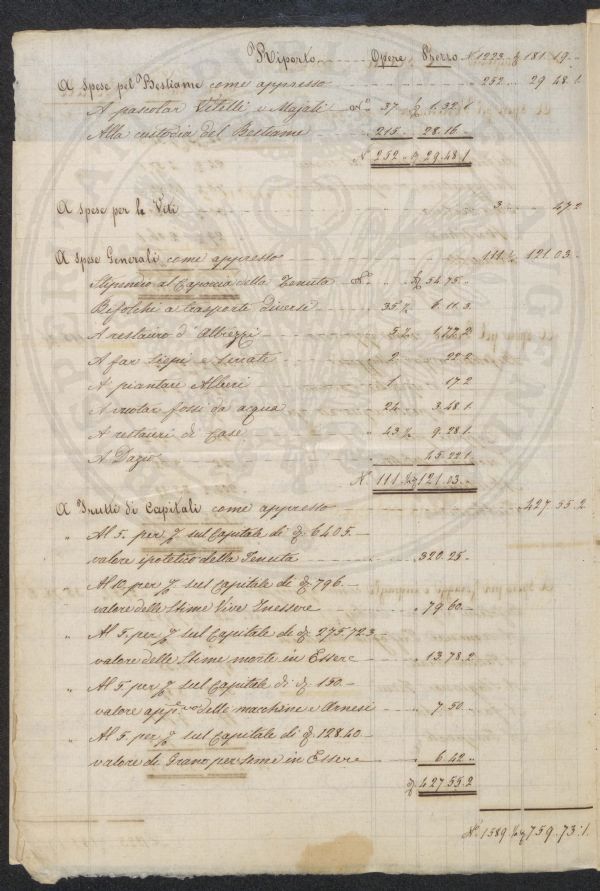 Riporto Opere Prezzo N. 1223 ½ 181. 19
A Spese pel Bestiame come appresso 252 29 48.1
A pascolar Vitelli e Majali N.º 37 1.32.1
Alla custodia del Bestiame 215 28.16
N. 252 29.48.1
A spese per le Viti 3 47.2
A Spese Generali come appresso 111 ½ 121.03
Stipendio al Caporcia della Tenuta N.º 54.75
Bifolchi a trasporti diversi 35 ½ 6.11.3
A restauro d'Attrezzi 5 ½ 1,77.2
A far Siepi e Serrate 2 22.2
A piantare Alberi 1 17.2
A vuotar fossi da acqua 24 3.48.1
A restauri di Case 43 ½ 9.28.1
A Dazio 45.22.1
N. 111 ½ 121.03
A Frutti di Capitali come appresso 427.55.2
" Al 5. per % sul Capitale di 6405.
valore ipotetico della Tenuta 320.25
" Al 10. per % sul Capitale di 796.
valore delle Stime Vive In essere 79.60
" Al 5. per % sul Capitale di 275.72.3
valore delle Stime morte in Essere 13.78.2
" Al 5. per % sul Capitale di 150.
valore delle macchine e Arnesi 7.50
" Al 5. per % sul Capitale di 128.40
valore di Grano per seme in Essere 6.42
427.55.2
N. 1589 ½ 759.73.1